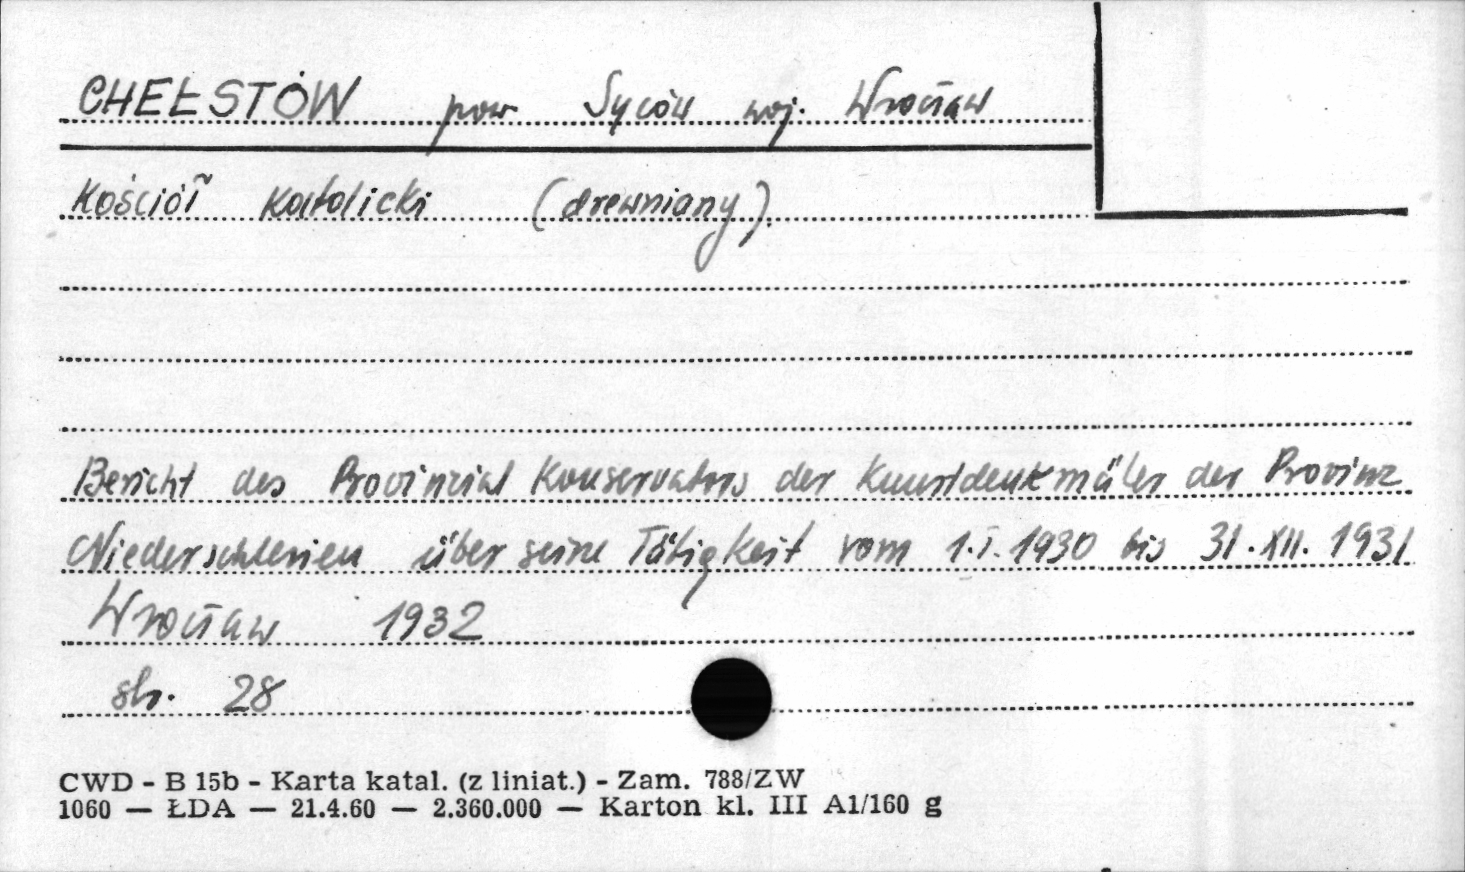 CHEŁSTÓW pow Syców woj. Wrocław
Kościół Katolicki (drewniany).
Bericht des Provinzial Konservators der Kunstdenkmäler der Provinz
Niederschlesien über seine Tätigkeit vom 1.I.1930 bis 31.XII.1931
Wrocław 1932
str. 28
CWD - B 15b - Karta katal. (z liniat.) - Zam. 788/ZW
1060 — ŁDA — 21.4.60 — 2.360.000 — Karton kl. III A1/160 g